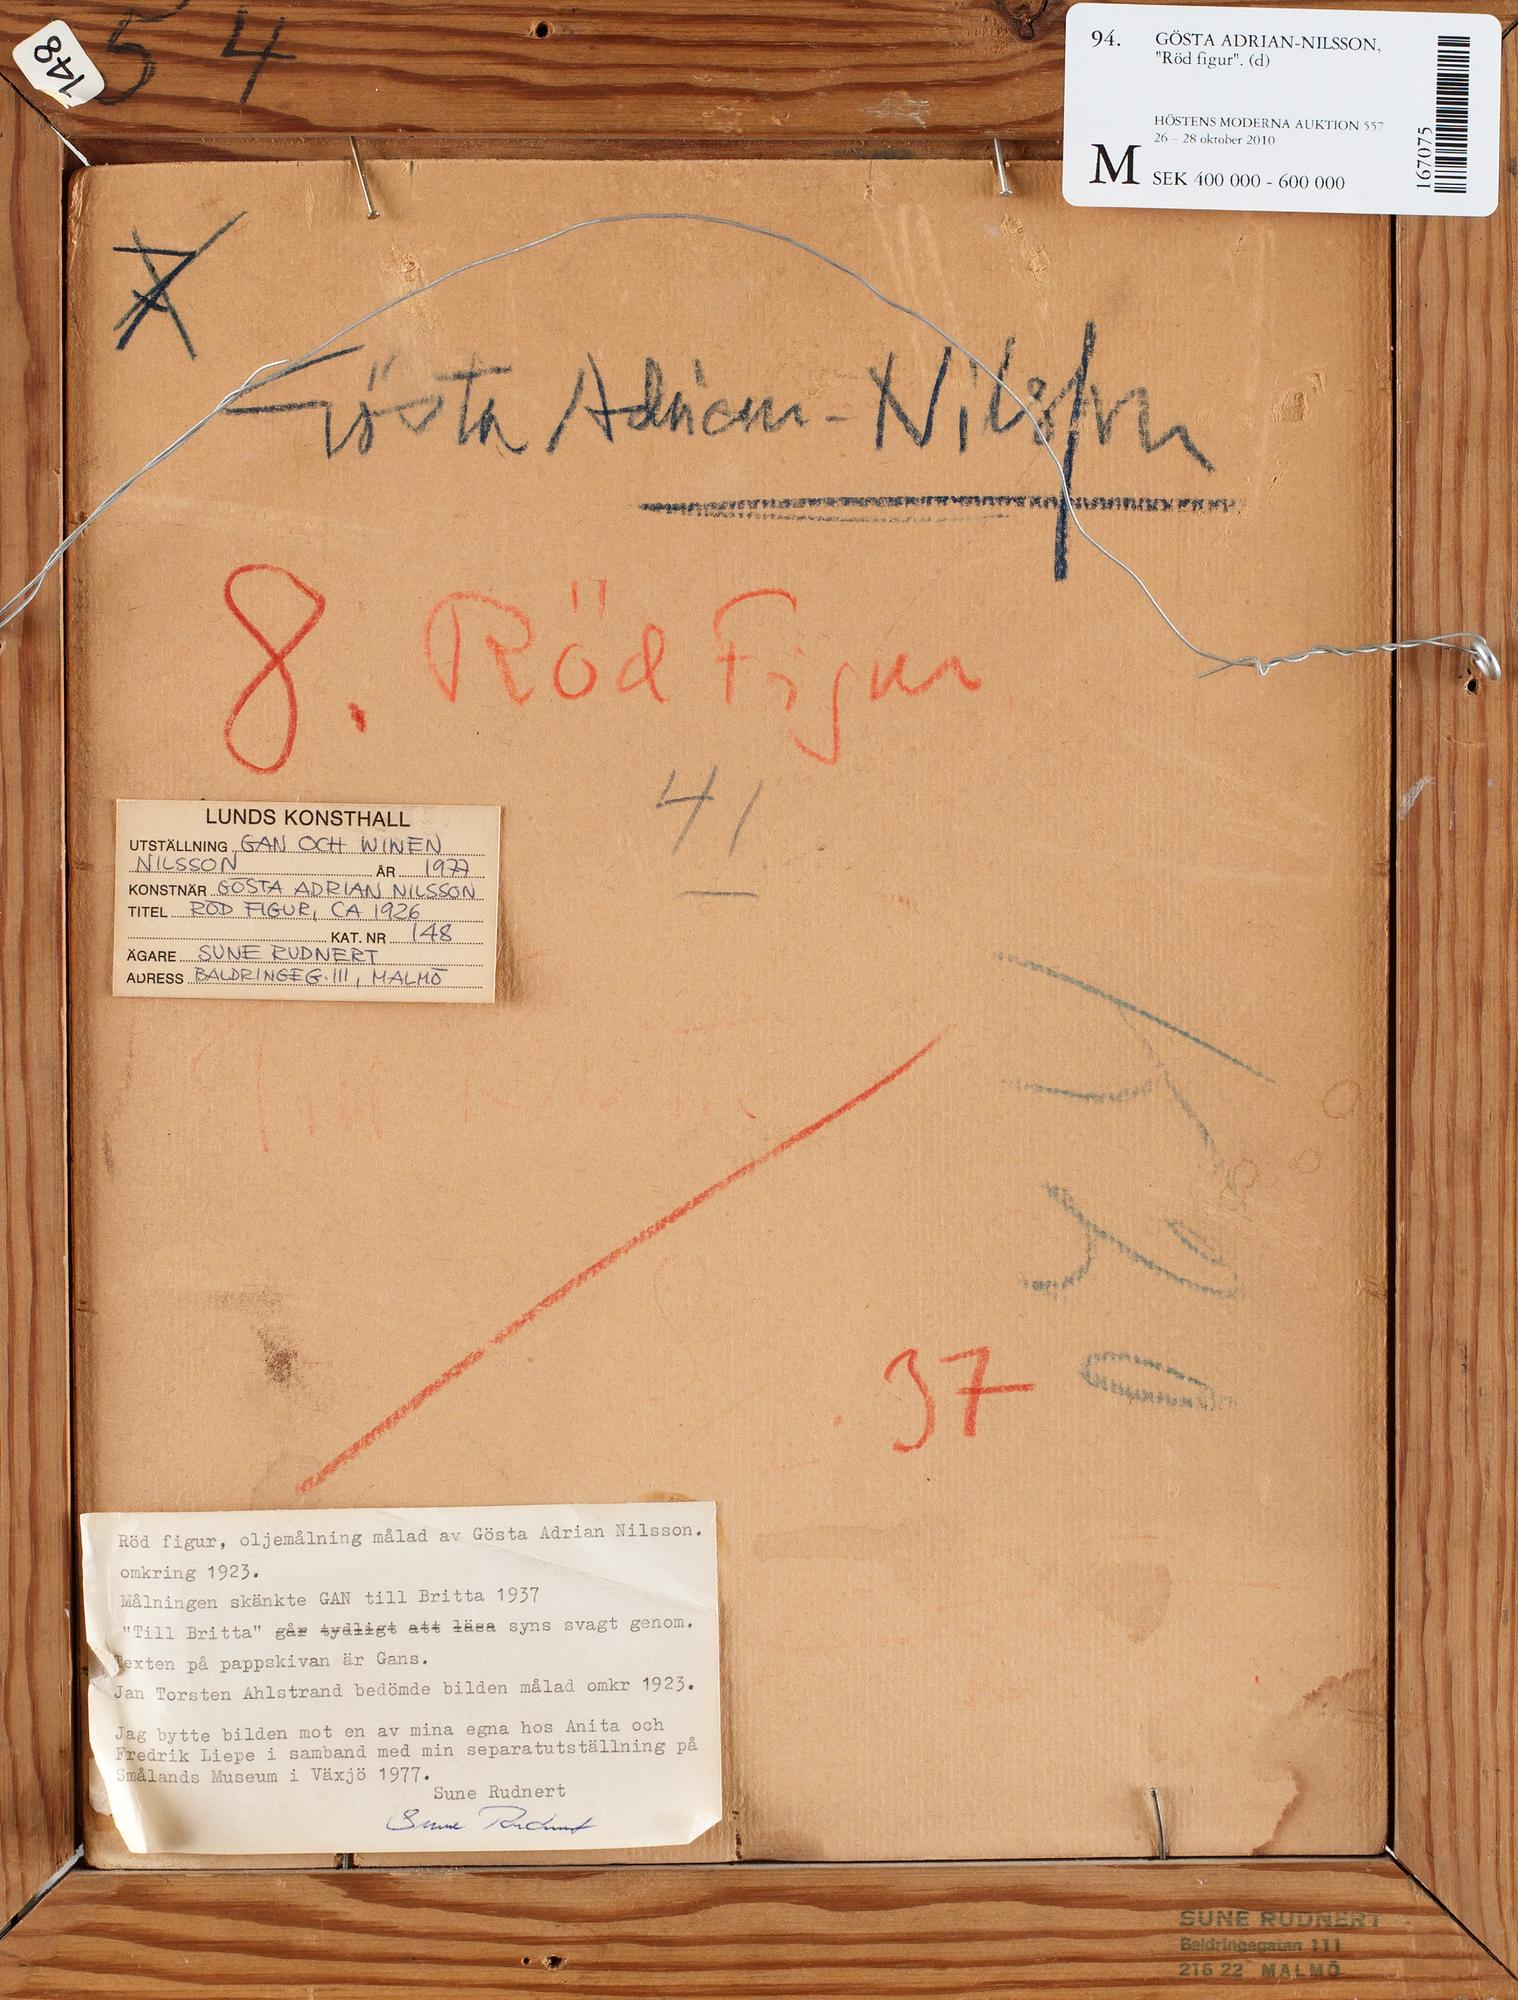 148
54
94. GÖSTA ADRIAN-NILSSON,
"Röd figur". (d)
HÖSTENS MODERNA AUKTION 557
26 – 28 oktober 2010
M SEK 400 000 - 600 000
167075
7
Gösta Adrian-Nilsson
8. Röd Figur
41.
LUNDS KONSTHALL
UTSTÄLLNING GAN OCH WIWEN
NILSSON ÅR 1977
KONSTNÄR GÖSTA ADRIAN NILSSON
TITEL RÖD FIGUR, CA 1926
KAT. NR 148
ÄGARE SUNE RUDNERT
ADRESS BALDRINGEG. 111, MALMÖ
37
Röd figur, oljemålning målad av Gösta Adrian Nilsson.
omkring 1923.
Målningen skänkte GAN till Britta 1937
"Till Britta" går tydligt att läsa syns svagt genom.
Texten på pappskivan är Gans.
Jan Torsten Ahlstrand bedömde bilden målad omkr 1923.
Jag bytte bilden mot en av mina egna hos Anita och
Fredrik Liepe i samband med min separatutställning på
Smålands Museum i Växjö 1977.
Sune Rudnert
Sune Rudnert
SUNE RUDNERT
Baldringegatan 111
216 22 MALMÖ